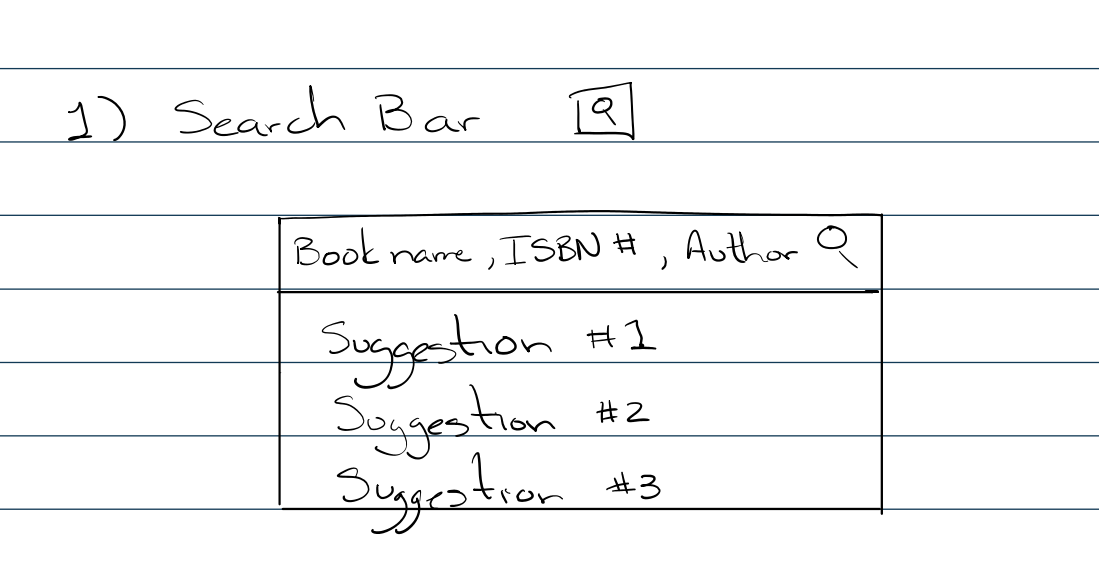 1) Search Bar
Book name, ISBN #, Author
Suggestion #1
Suggestion #2
Suggestion #3